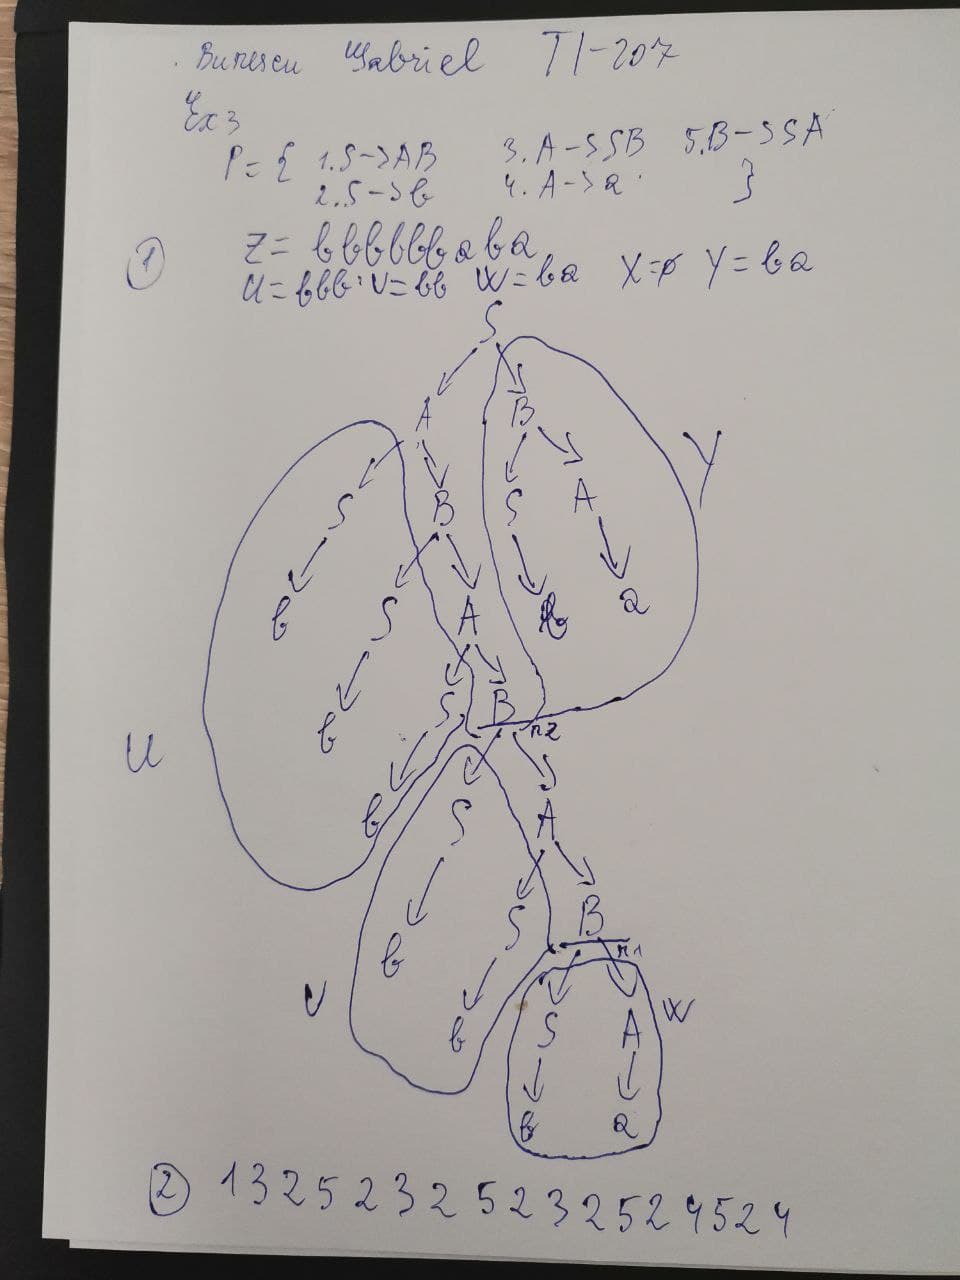 Bunescu Gabriel TI-207
Ex 3
P = { 1. S->AB 3. A->SB 5. B->SA
2. S->b 4. A->a }
① Z = bbbbbbaba
U = bbb V = bb W = ba X = ø Y = ba
S
A B
Y
S B S A
b S A b a
b S B n2
U
b S A
b S B n1
V b S A W
b a
② 1 3 2 5 2 3 2 5 2 3 2 5 2 4 5 2 4